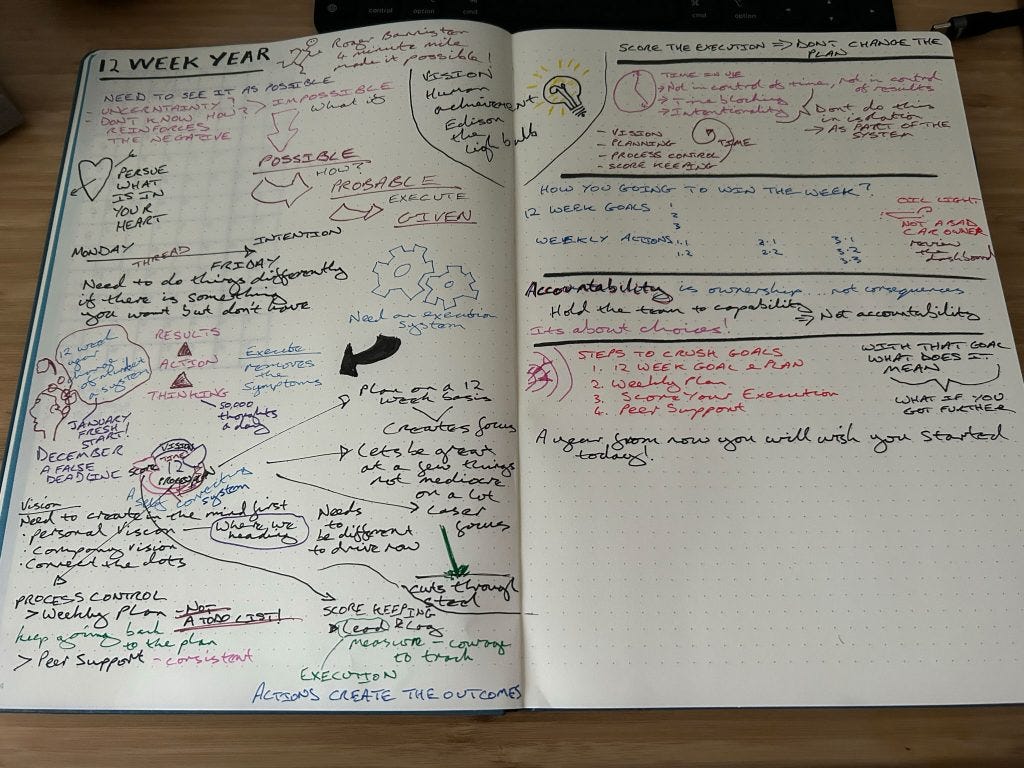 12 WEEK YEAR
Roger Bannister
4 minute mile
made it possible!
NEED TO SEE IT AS POSSIBLE
- UNCERTAINTY?
- DON'T KNOW HOW?
REINFORCES
THE NEGATIVE
> IMPOSSIBLE
What if
POSSIBLE
HOW?
PROBABLE
EXECUTE
GIVEN
VISION
Human
achievement
Edison
the
light bulb
PERSUE
WHAT
IS IN
YOUR
HEART
MONDAY
THREAD
INTENTION
FRIDAY
Need to do things differently
if there is something
you want but don't have
Need an execution
system
12 week
year
a system
RESULTS
ACTION
THINKING
50,000
thoughts
a day
Execute
removes
the
Symptoms
JANUARY
FRESH
START!
DECEMBER
A FALSE
DEADLINE
VISION
TIME
SCORE
12
PROCESS
A self correcting
system
Plan on a 12
week basis
Creates focus
Lets be great
at a few things
not mediocre
on a lot
Laser
focus
cuts through
steel
Needs
to
be different
to drive now
Vision
Need to create in the mind first
· personal vision
Where we
heading
· company vision
· connect the dots
PROCESS CONTROL
> Weekly Plan - NOT
A TODO LIST!
keep going back
to the plan
> Peer Support - consistent
SCORE KEEPING
Lead & Lag
measure - courage
to track
EXECUTION
ACTIONS CREATE THE OUTCOMES
SCORE THE EXECUTION => DON'T CHANGE THE
PLAN
TIME IN USE
→ Not in control of time, not in control
of results
→ Time blocking
→ Intentionality
Dont do this
in isolation
→ AS PART OF THE
SYSTEM
- VISION
- PLANNING
- PROCESS CONTROL
- SCORE KEEPING
TIME
HOW YOU GOING TO WIN THE WEEK?
12 WEEK GOALS 1
2
3
WEEKLY ACTIONS 1.1 2.1 3.1
1.2 2.2 3.2
3.3
OIL LIGHT
NOT A BAD
CAR OWNER
review
the
dashboard
Accountability is ownership... not consequences
Hold the team to capability
=> Not accountability
Its about choices!
STEPS TO CRUSH GOALS
1. 12 WEEK GOAL & PLAN
2. Weekly Plan
3. Score Your Execution
4. Peer Support
WITH THAT GOAL
WHAT DOES IT
MEAN
WHAT IF YOU
GOT FURTHER
A year from now you will wish you started
today!